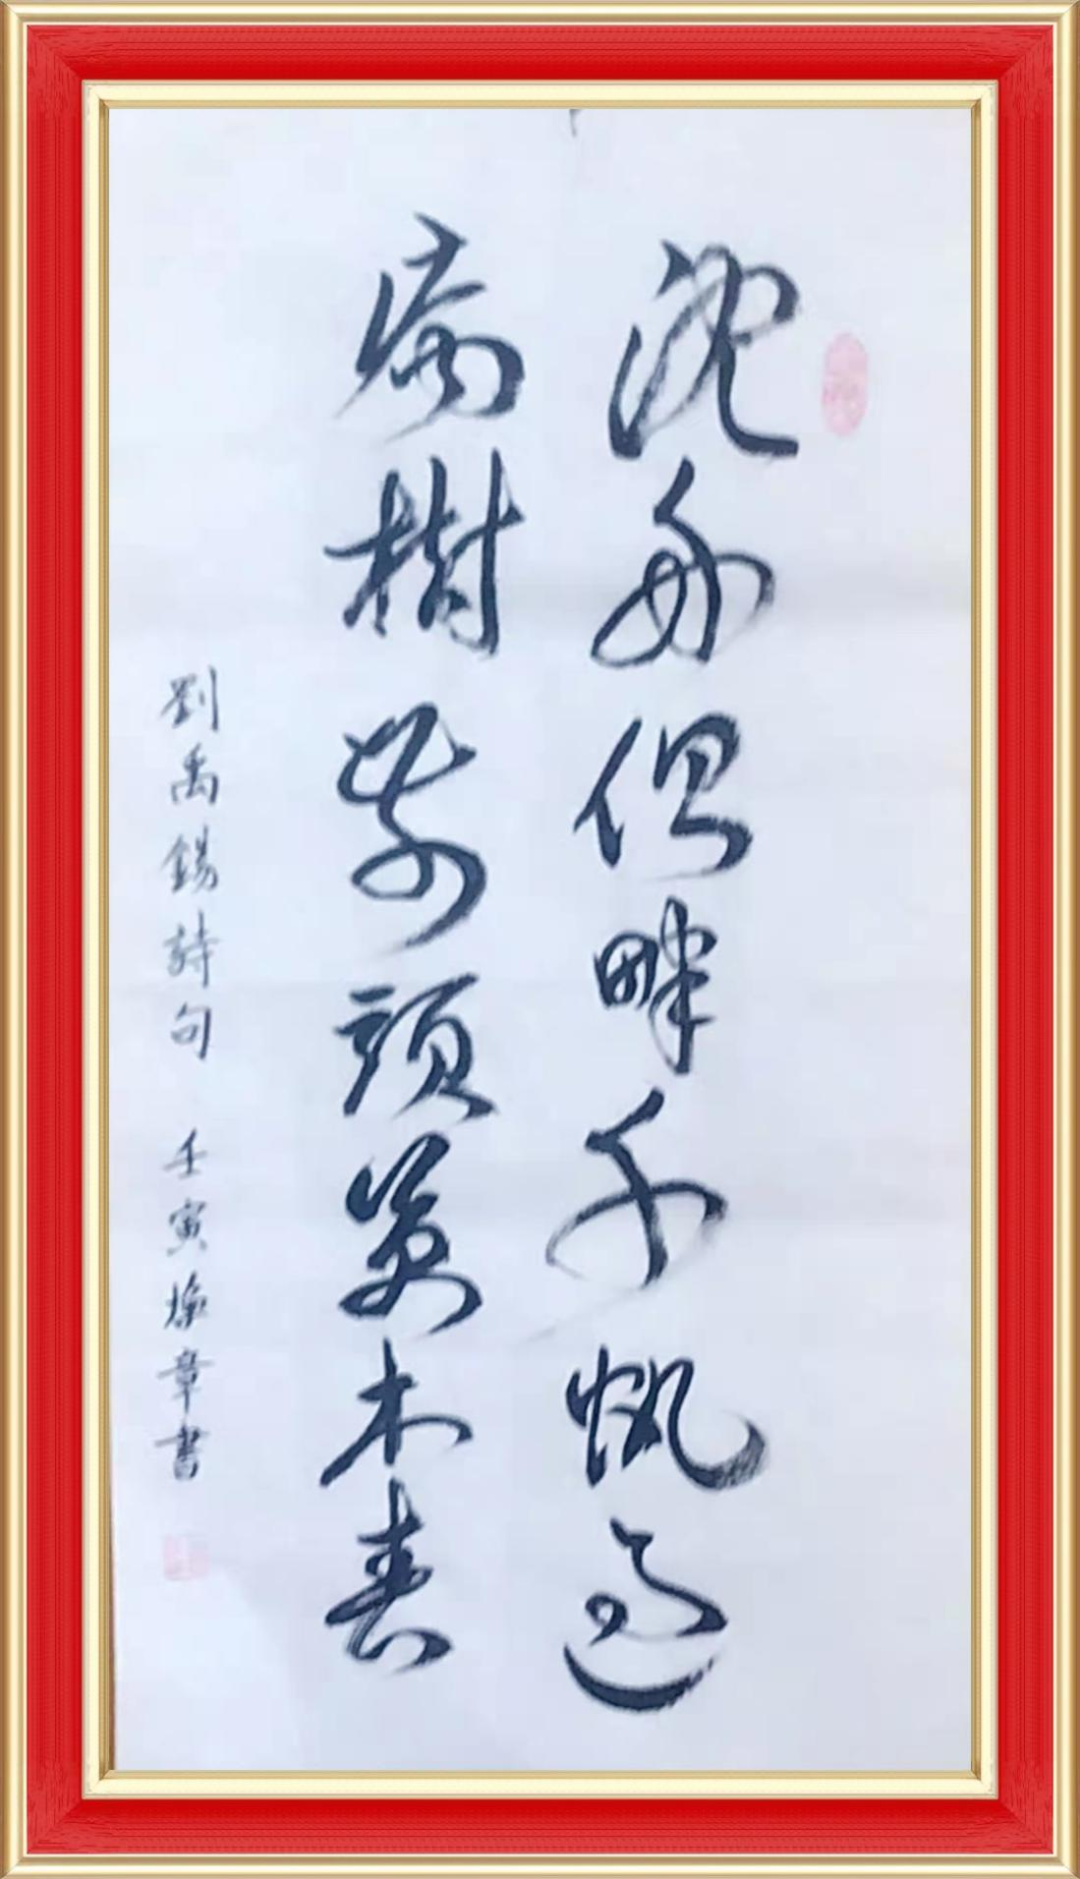 沈舟侧畔千帆过
病樹前頭萬木春
劉禹錫詩句 壬寅 章書